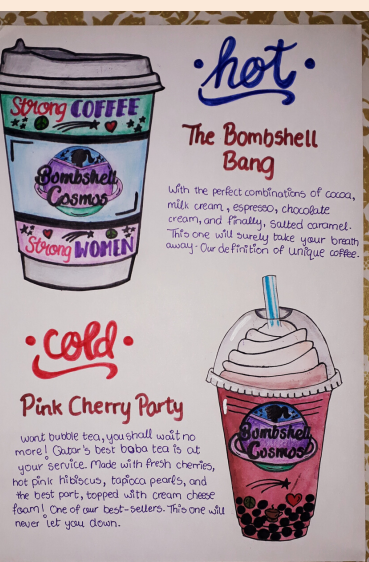 Strong COFFEE
Bombshell
Cosmos
Strong WOMEN
hot
The Bombshell
Bang
With the perfect combinations of cocoa,
milk cream, espresso, chocolate
cream, and finally, salted caramel.
This one will surely take your breath
away. Our definition of unique coffee.
cold
Pink Cherry Party
Want bubble tea, you shall wait no
more! Qatar's best boba tea is at
your service. Made with fresh cherries,
hot pink hibiscus, tapioca pearls, and
the best part, topped with cream cheese
foam! One of our best-sellers. This one will
never let you down.
Bombshell
Cosmos